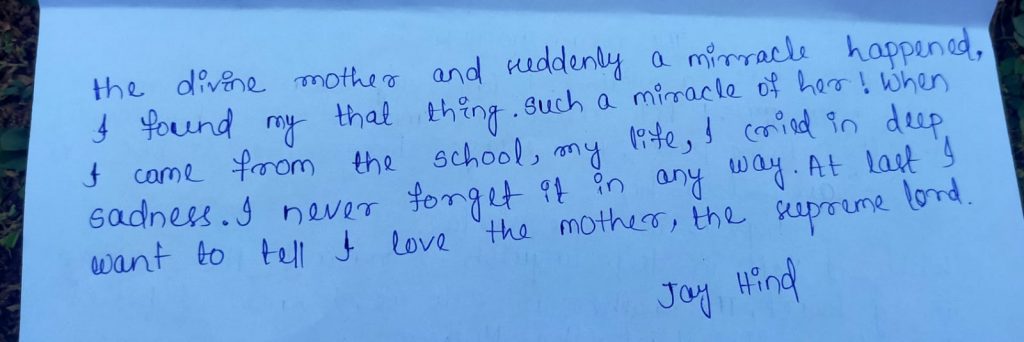 the divine mother and suddenly a mirracle happened,
I found my that thing. Such a miracle of her! When
I came from the school, my life, I cried in deep
sadness. I never forget it in any way. At last I
want to tell I love the mother, the supreme lord.
Jay Hind